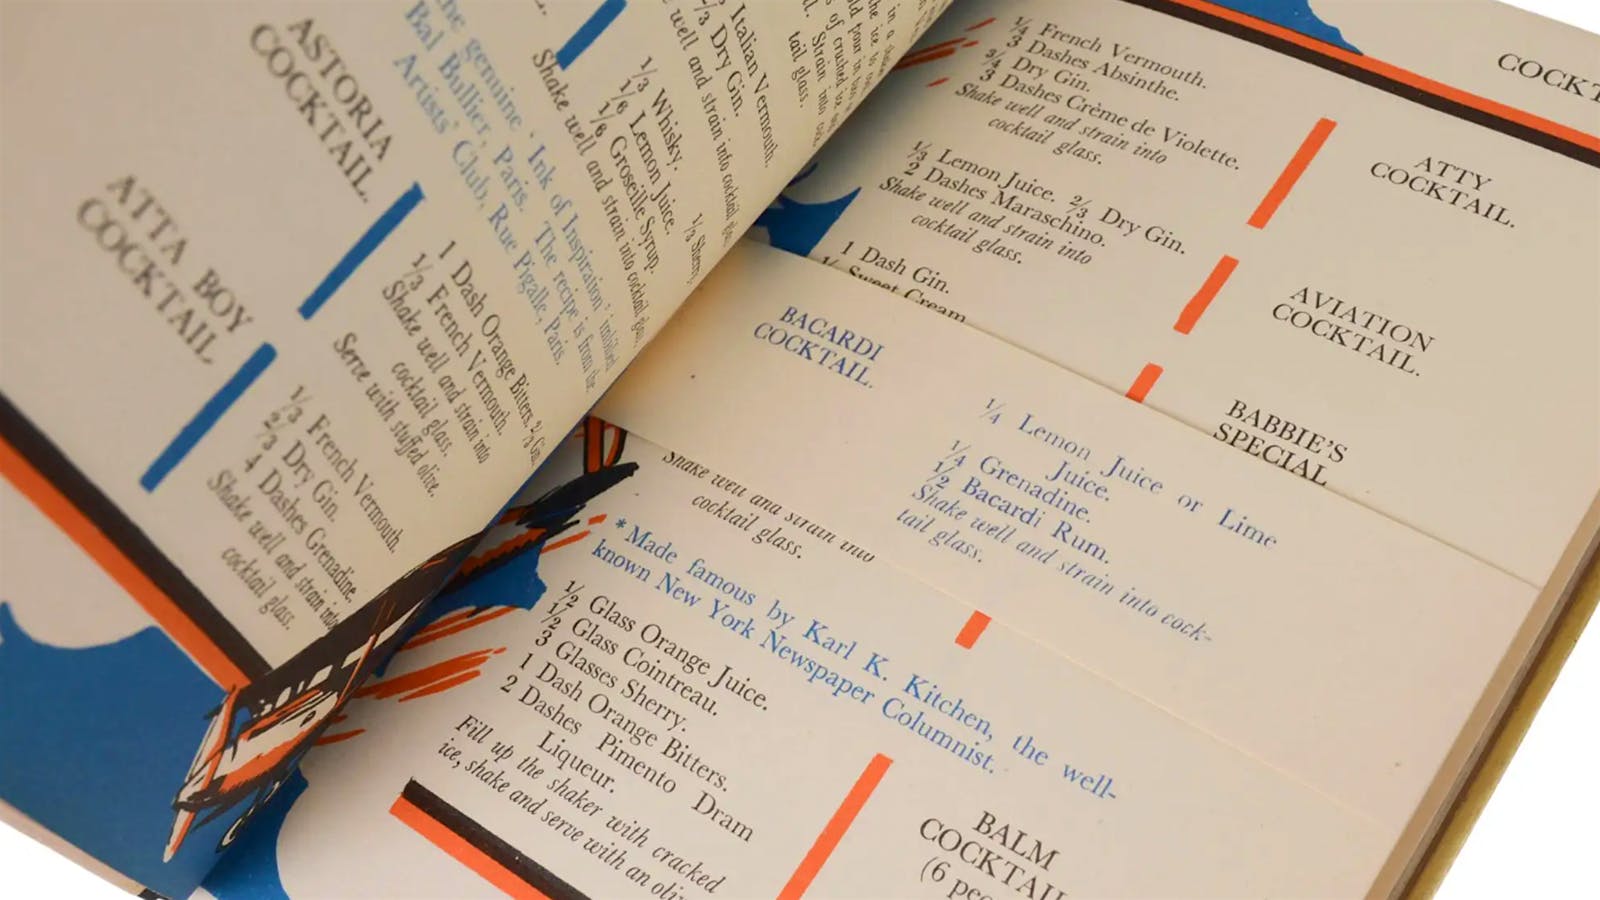 ASTORIA
COCKTAIL.
1 Dash Orange Bitters.
1/3 French Vermouth.
Shake well and strain into
cocktail glass.
Serve with stuffed olive.
ATTA BOY
COCKTAIL.
1/3 French Vermouth.
2/3 Dry Gin.
4 Dashes Grenadine.
Shake well and strain into
cocktail glass.
the genuine 'Ink of Inspiration' imbibed
Bal Bullier, Paris. The recipe is from the
Artists' Club, Rue Pigalle, Paris.
1/3 Whisky.
1/6 Lemon Juice.
1/6 Groseille Syrup.
1/3 Sherry.
Shake well and strain into cocktail glass.
Italian Vermouth.
2/3 Dry Gin.
well and strain into cocktail
of crushed ice
Strain into
tail glass.
COCKT
1/4 French Vermouth.
3 Dashes Absinthe.
3/4 Dry Gin.
3 Dashes Crème de Violette.
Shake well and strain into
cocktail glass.
ATTY
COCKTAIL.
1/3 Lemon Juice. 2/3 Dry Gin.
2 Dashes Maraschino.
Shake well and strain into
cocktail glass.
AVIATION
COCKTAIL.
1 Dash Gin.
Sweet Cream
BABBIE'S
SPECIAL
BACARDI
COCKTAIL.
1/4 Lemon Juice or Lime
Juice.
1/4 Grenadine.
1/2 Bacardi Rum.
Shake well and strain into cock-
tail glass.
Shake well and strain into
cocktail glass.
*Made famous by Karl K. Kitchen, the well-
known New York Newspaper Columnist.
1/2 Glass Orange Juice.
1/2 Glass Cointreau.
3 Glasses Sherry.
1 Dash Orange Bitters.
2 Dashes Pimento Dram
Liqueur.
Fill up the shaker with cracked
ice, shake and serve with an oliv
BALM
COCKTAIL
(6 peo